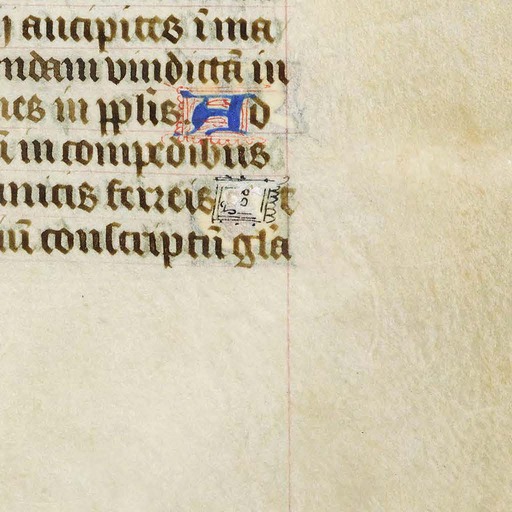 ancipites ĩ ma
ndam vindictã in
nes in pplĩs. Ad
ĩ in compedibus
anicis ferreis
iũ conscriptũ glã